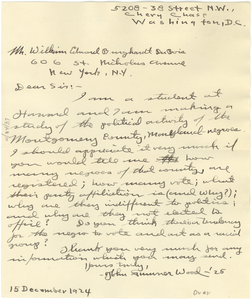 5208-38 Street N.W.,
Chevy Chase
Washington, D.C.
Mr. William Edward Burghardt DuBois
606 St. Nicholas Avenue
New York, N.Y.
Dear Sir:-
I am a student at
Harvard and I am making a
study of the political activity of the
Montgomery County, Maryland negroes.
I should appreciate it very much if
you would tell me how
many negroes of that county are
registered; how many vote; what
their party affiliation is (and why?);
why are they indifferent to politics;
and why are they not elected to
office? Do you think there is a tendency
for the negro to vote and act as a racial
group?
I thank you very much for any
information which you may send.
Yours truly,
John Sumner Wood - '25
15 December 1924
Over